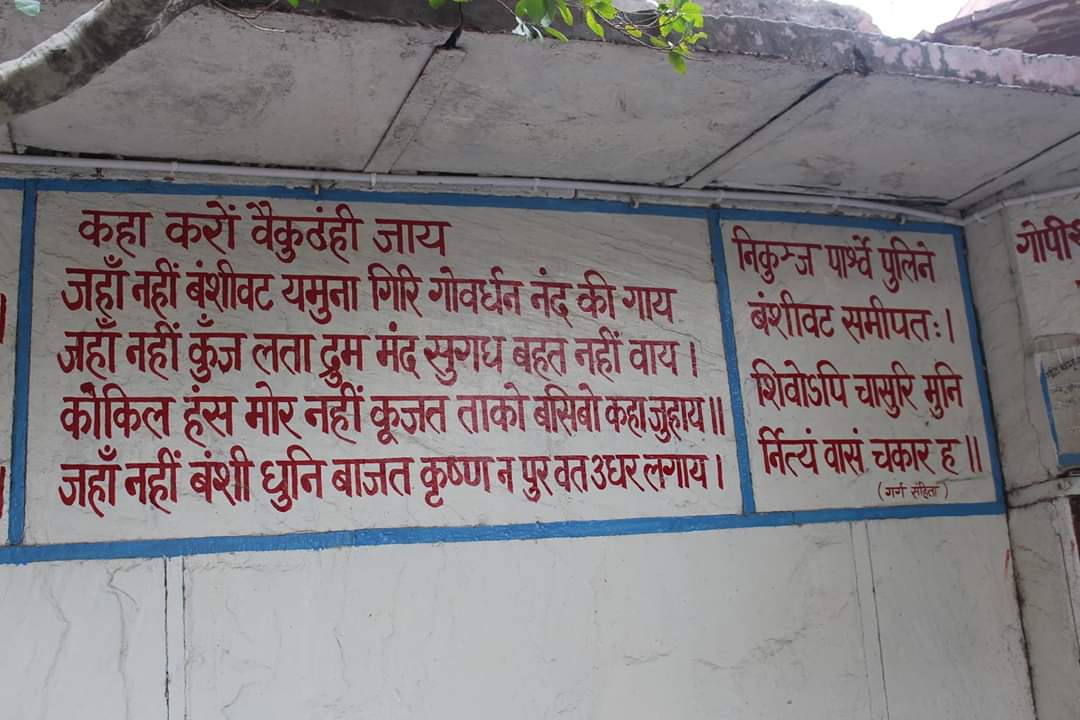 कहा करों वैकुठंही जाय
जहाँ नहीं बंशीवट यमुना गिरि गोवर्धन नंद की गाय
जहाँ नहीं कुँज लता द्रुम मंद सुगधं बहत नहीं वाय ।
कोकिल हंस मोर नहीं कूजत ताको बसिबो कहा जुहाय ॥
जहाँ नहीं बंशी धुनि बाजत कृष्ण न पुर वत उधर लगाय ।
निकुञ्ज पार्श्वे पुलिने
बंशीवट समीपतः ।
शिवोऽपि चासुरि मुनि
र्नित्यं वासं चकार ह ॥
(गर्ग संहिता)